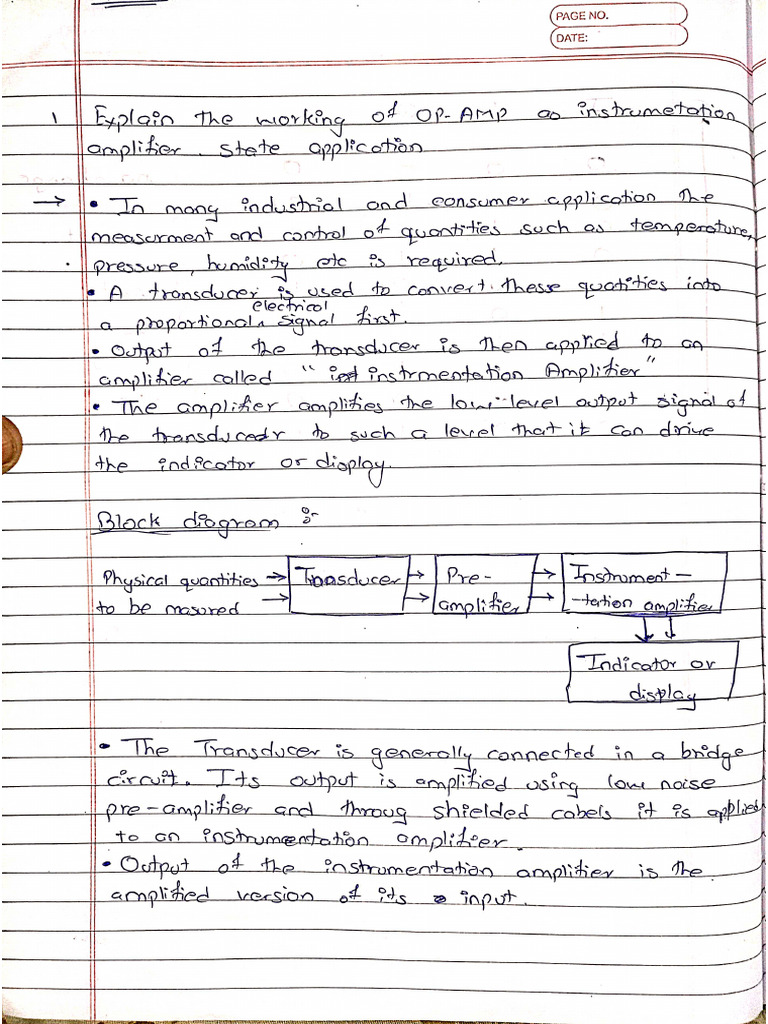 PAGE NO.
DATE:
1 Explain the working of OP-AMP as instrumetation
amplifier. state application
→ • In many industrial and consumer application the
measurment and control of quantities such as temperature,
pressure, humidity etc is required.
• A transducer is used to convert these quatities into
electrical
a proportional signal first.
• Output of the transducer is then applied to an
amplifier called " instrmentation Amplifier"
• The amplifier amplifies the low-level output signal of
the transducedr to such a level that it can drive
the indicator or display.
Block diagram :-
Physical quantities → Transducer → Pre- → Instrument -
to be masured → → amplifier → -tation amplifier
Indicator or
display
• The Transducer is generally connected in a bridge
circuit. Its output is amplified using low noise
pre-amplifier and throug shielded cabels it is applied
to an instrumentation amplifier.
• Output of the instrumentation amplifier is the
amplified version of its input.